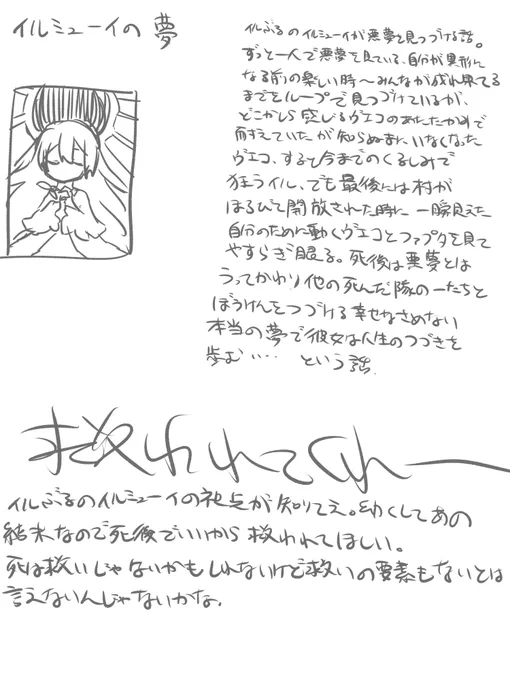 イルミューイの夢
イルぶるのイルミューイが悪夢を見つづける話。
ずっと一人で悪夢を見ている、自分が異形に
なる前の楽しい時〜みんなが成れ果てる
までをループで見つづけているが、
どこかから感じるヴエコのあたたかみで
耐えていたが知らぬまにいなくなった
ヴエコ、すると今までのくるしみで
狂うイル、でも最後には村が
ほろびて開放された時に一瞬見えた
自分のために動くヴエコとファプタを見て
やすらぎ眠る。死後は悪夢とは
うってかわり他の死んだ隊の一たちと
ぼうけんをつづける幸せなさめない
本当の夢で彼女は人生のつづきを
歩む…‥ という話.
救われてくれー
イルぶるのイルミューイの視点が知りてえ。幼くしてあの
結末なので死後でいいから救われてほしい。
死は救いじゃないかもしれないけど救いの要素もないとは
言えないんじゃないかな.